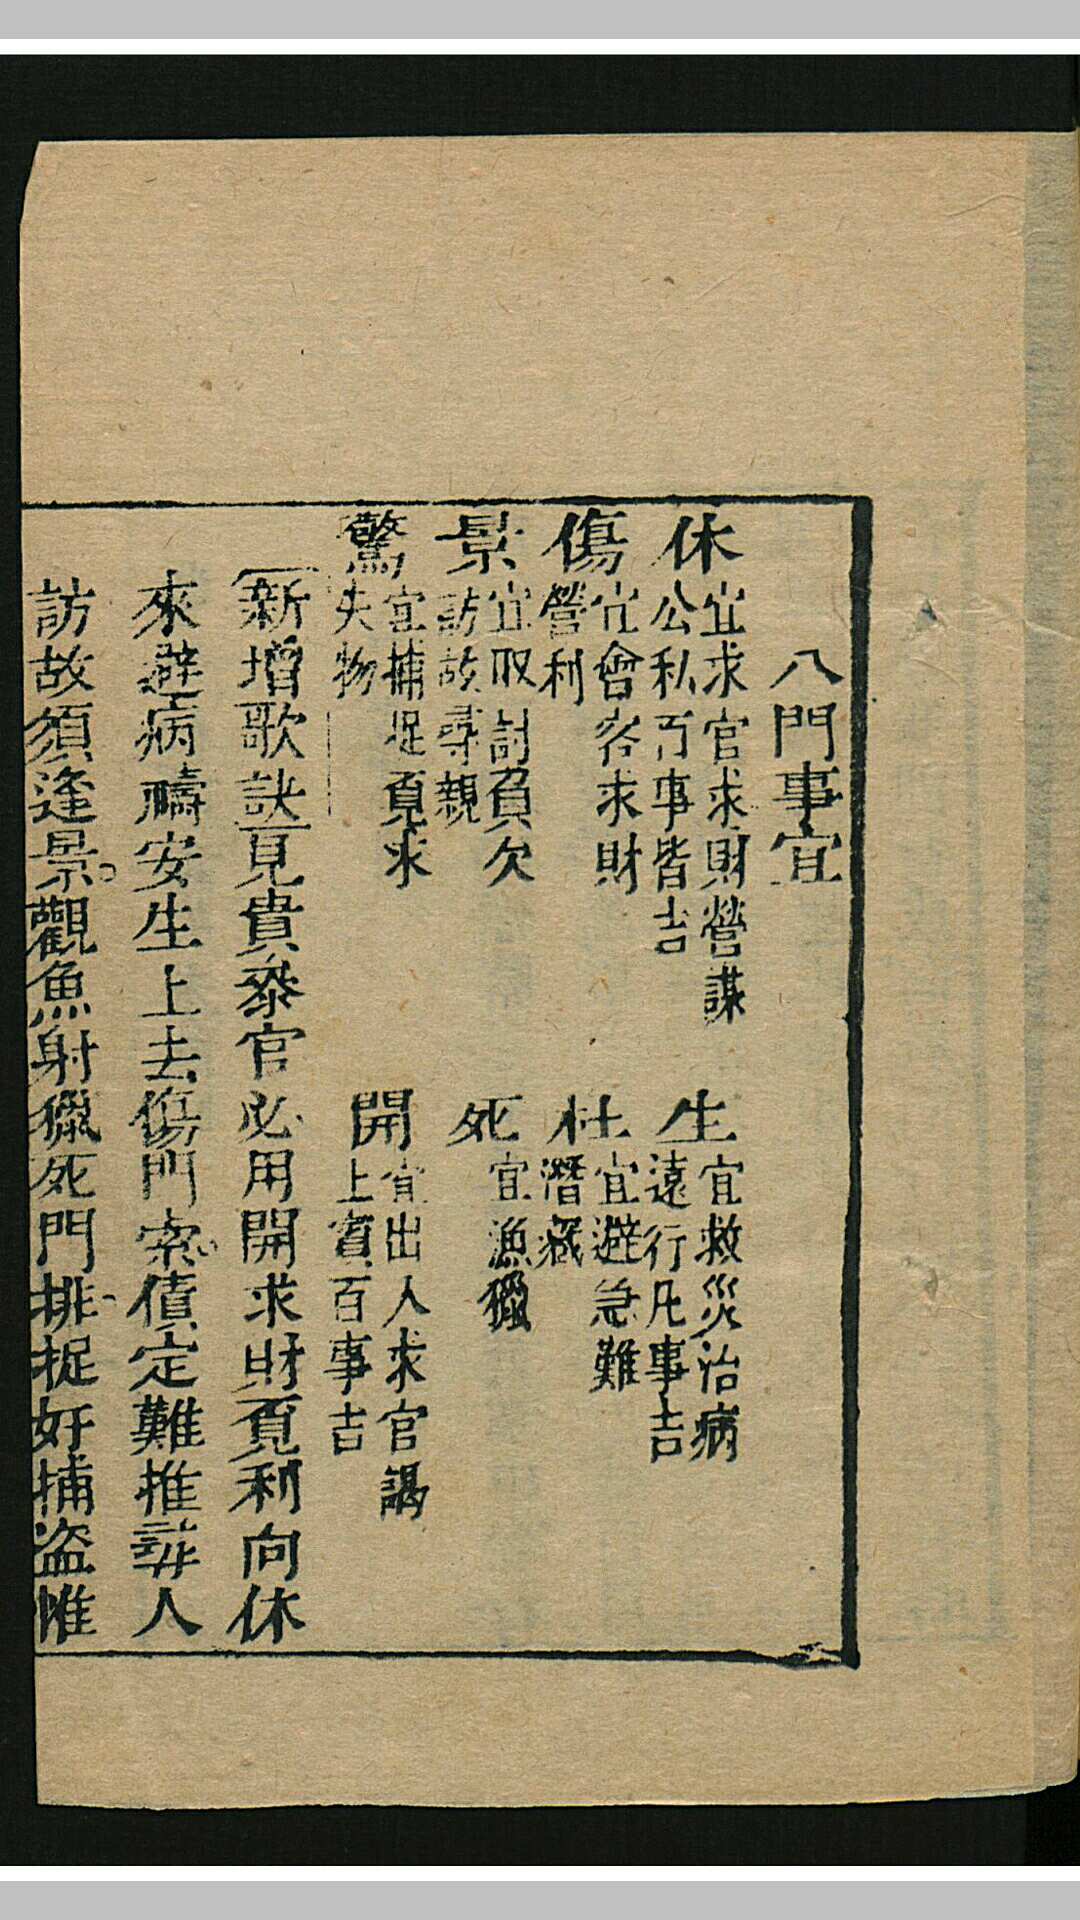 八門事宜
休 宜求官求財營謀公私百事皆吉
生 宜救災治病遠行凡事吉
傷 宜會客求財營利
杜 宜避急難潛藏
景 宜取討負欠訪故尋親
死 宜漁獵
驚 宜捕捉覔求失物
開 宜出入求官謁上賓百事吉
新增歌訣見貴叅官必用開求財覔利向休
來避病禱安生上去傷門索債定難推尋人
訪故須逢景觀魚射獵死門排捉奸捕盜惟